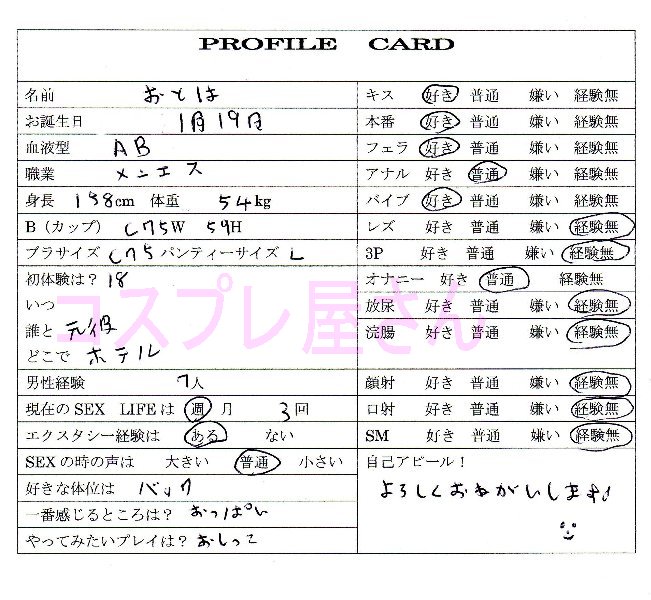 PROFILE CARD
名前 おとは
お誕生日 1月19日
血液型 AB
職業 メンエス
身長 158cm 体重 54kg
B（カップ） C75 W 59 H
ブラサイズ C75 パンティーサイズ L
初体験は？ 18
いつ
誰と 元彼
どこで ホテル
男性経験 7人
現在のSEX LIFEは 週 月 3回
エクスタシー経験は ある ない
SEXの時の声は 大きい 普通 小さい
好きな体位は バック
一番感じるところは？ おっぱい
やってみたいプレイは？ おしっこ
キス 好き 普通 嫌い 経験無
本番 好き 普通 嫌い 経験無
フェラ 好き 普通 嫌い 経験無
アナル 好き 普通 嫌い 経験無
バイブ 好き 普通 嫌い 経験無
レズ 好き 普通 嫌い 経験無
3P 好き 普通 嫌い 経験無
オナニー 好き 普通 経験無
放尿 好き 普通 嫌い 経験無
浣腸 好き 普通 嫌い 経験無
顔射 好き 普通 嫌い 経験無
口射 好き 普通 嫌い 経験無
SM 好き 普通 嫌い 経験無
自己アピール！
よろしくおねがいします♪
コスプレ屋さん